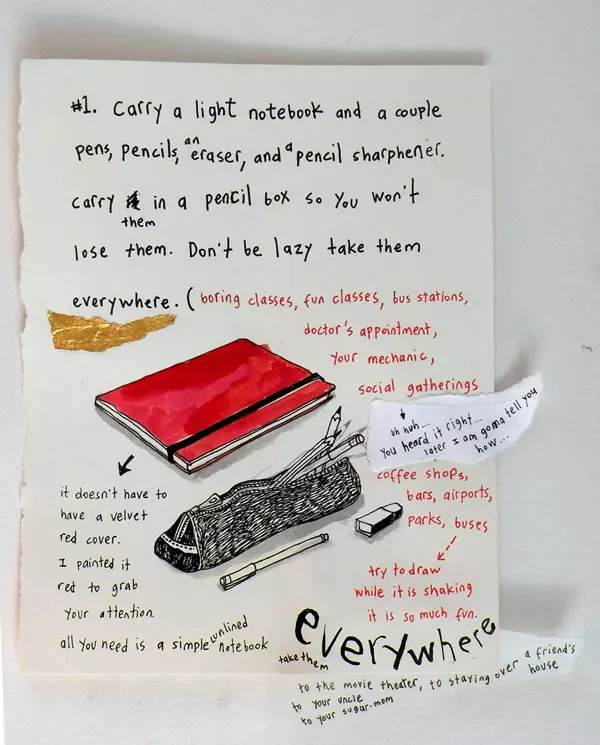 #1. Carry a light notebook and a couple
pens, pencils, an eraser, and a pencil sharphener.
carry in a pencil box so you won't
them
lose them. Don't be lazy take them
everywhere. (boring classes, fun classes, bus stations,
doctor's appointment,
your mechanic,
social gatherings
uh huh...
You heard it right...
later I am gonna tell you
how...
coffee shops,
bars, airports,
parks, buses
try to draw
while it is shaking
it is so much fun.
it doesn't have to
have a velvet
red cover.
I painted it
red to grab
your attention.
all you need is a simple unlined notebook
take them everywhere
to the movie theater, to staying over a friend's house
to your uncle
to your sugar-mom